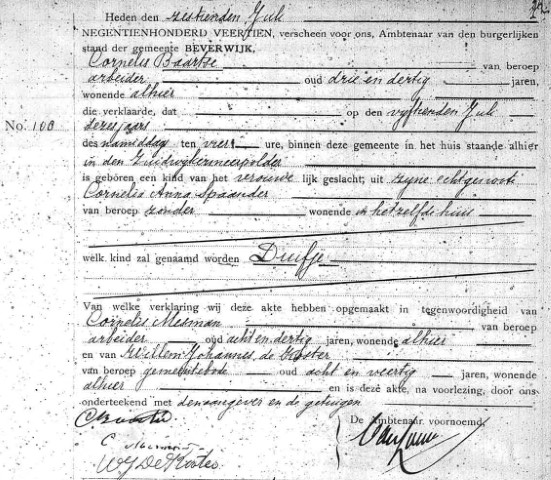 Heden den zestienden Juli
NEGENTIENHONDERD VEERTIEN, verscheen voor ons, Ambtenaar van den burgerlijken
stand der gemeente BEVERWIJK,
Cornelis Baartse van beroep
arbeider oud drie en dertig jaren,
wonende alhier
die verklaarde, dat op den vijftienden Juli
dezes jaars
No. 100
des namiddag ten vier ure, binnen deze gemeente in het huis staande alhier
in den Zuidwijkermeerpolder
is geboren een kind van het vrouwe lijk geslacht, uit zijne echtgenoote
Cornelia Anna Spaander
van beroep zonder wonende in hetzelfde huis
welk kind zal genaamd worden Duifje
Van welke verklaring wij deze akte hebben opgemaakt in tegenwoordigheid van
Cornelis Mesman van beroep
arbeider oud acht en dertig jaren, wonende alhier
en van Willem Johannes de Kooter
van beroep gemeentebode oud acht en veertig jaren, wonende
alhier en is deze akte, na voorlezing, door ons
onderteekend met den aangever en de getuigen
De Ambtenaar voornoemd,
WJ De Kooter